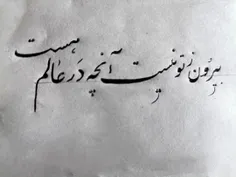 بیرون ز تو نیست آنچه در عالم هست